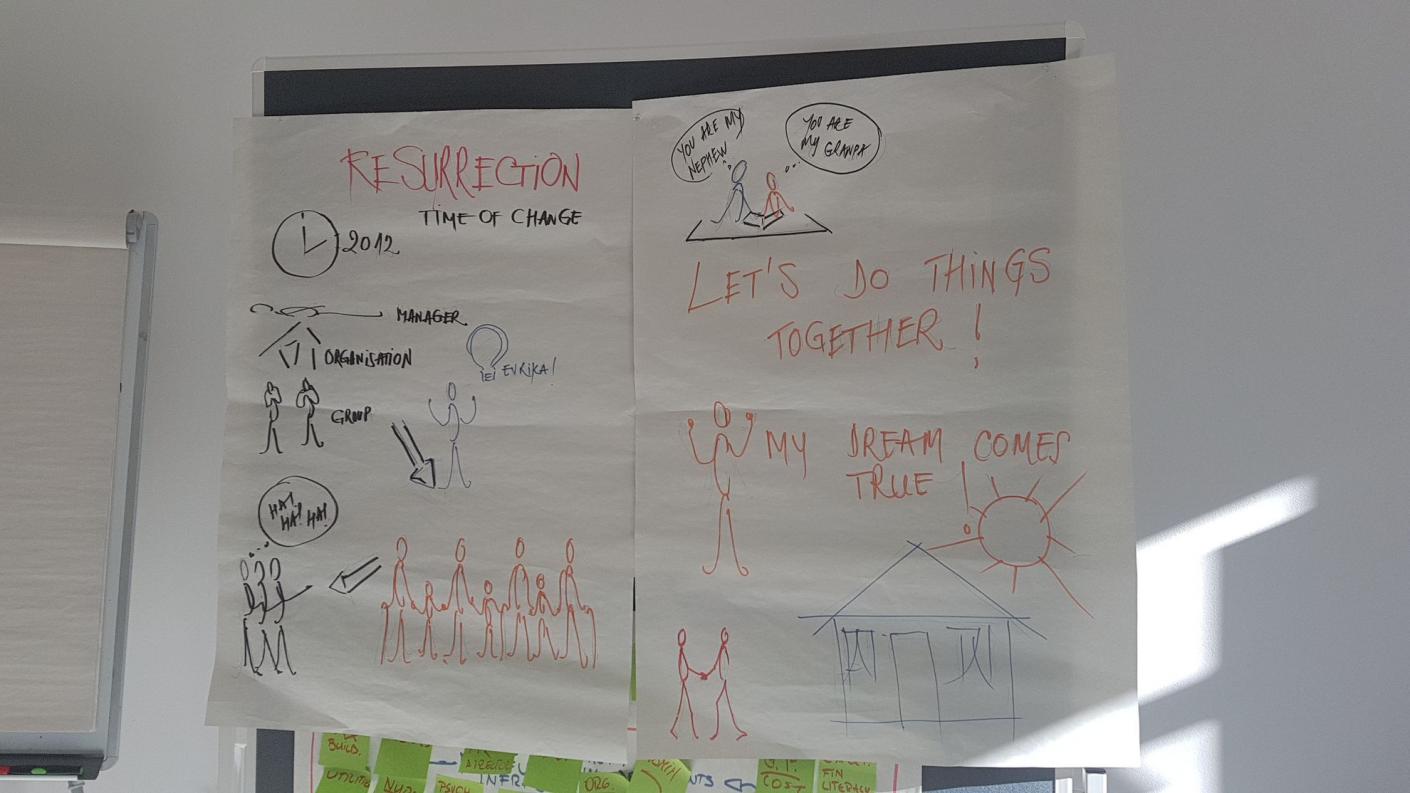 RESURRECTION
TIME OF CHANGE
2012
MANAGER
ORGANISATION
EVRIKA!
GROUP
HA!
HA! HA!
YOU ARE MY
NEPHEW
YOU ARE
MY GRANPA
LET'S DO THINGS
TOGETHER!
MY DREAM COMES
TRUE
BUILD.
INFR
ORG.
NTS
COST
FIN
LITERACY
PSYCH